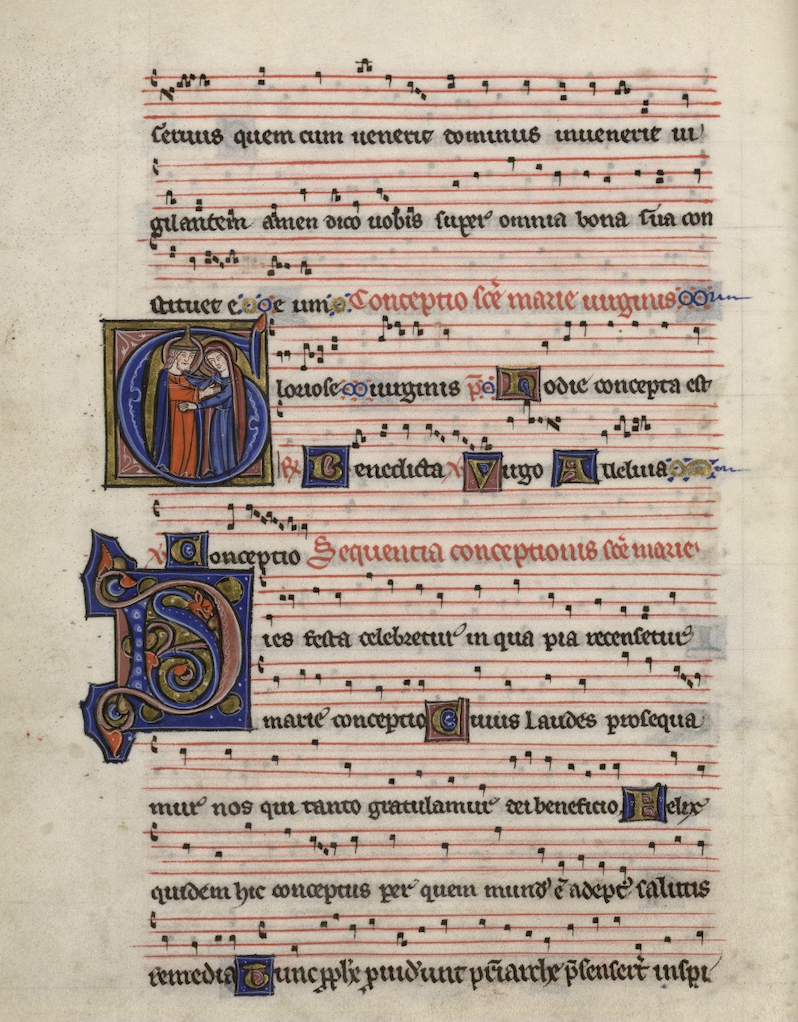 seruus quem cum uenerit dominus inuenerit ui
gilantem amen dico uobis super omnia bona sua con
stituet e e um Conceptio scē marie uirginis
Gloriose uirginis p̄ Hodie concepta est
℟ Benedicta ℣ Virgo Alleluia
℣ Conceptio Sequentia conceptionis scē marie
Dies festa celebretur in qua pia recensetur
marie conceptio Cuius laudes prosequa
mur nos qui tanto gratulamur dei beneficio Felix
quidem hic conceptus per quem mund᷒ ē adept᷒ salutis
remedia Tunc ꝓph̄e ꝓuid'unt pr̄iarche p̄senser̄t inspi